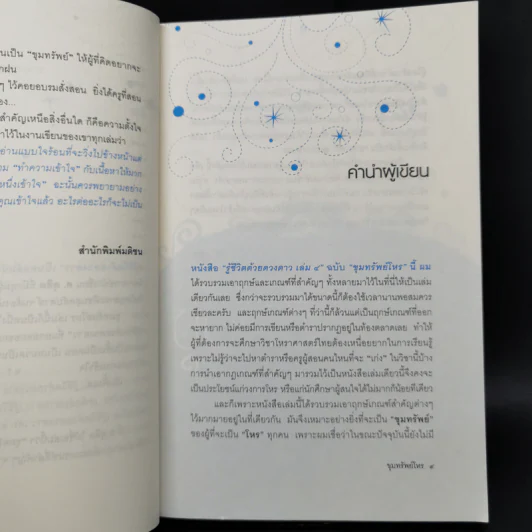 นเป็น "ขุมทรัพย์" ให้ผู้ที่คิดอยากจะ
กฝน
ๆ ไว้คอยอบรมสั่งสอน ยิ่งได้ครูที่สอน
อง...
สำคัญเหนือสิ่งอื่นใด ก็คือความตั้งใจ
าไว้ในงานเขียนของเขาทุกเล่มว่า
อ่านแบบใจร้อนที่จะวิ่งไปข้างหน้าแต่
ม "ทำความเข้าใจ" กับเนื้อหาให้มาก
หนึ่งเข้าใจ" ฉะนั้นควรพยายามอย่าง
คุณเข้าใจแล้ว อะไรต่ออะไรก็จะไม่เป็น
สำนักพิมพ์มติชน
คำนำผู้เขียน
หนังสือ "รู้ชีวิตด้วยดวงดาว เล่ม ๔" ฉบับ "ขุมทรัพย์โหร" นี้ ผม
ได้รวบรวมเอาฤกษ์และเกณฑ์ที่สำคัญๆ ทั้งหลายมาไว้ในที่นี้ให้เป็นเล่ม
เดียวกันเลย ซึ่งกว่าจะรวบรวมมาได้ขนาดนี้ก็ต้องใช้เวลานานพอสมควร
เชียวละครับ และฤกษ์เกณฑ์ต่างๆ ที่ว่านี้ก็ล้วนแต่เป็นฤกษ์เกณฑ์ที่ออก
จะหายาก ไม่ค่อยมีการเขียนหรือตำราปรากฏอยู่ในท้องตลาดเลย ทำให้
ผู้ที่ต้องการจะศึกษาวิชาโหราศาสตร์ไทยต้องเหนื่อยยากในการเรียนรู้
เพราะไม่รู้ว่าจะไปหาตำราหรือครูผู้สอนคนไหนที่จะ "เก่ง" ในวิชานี้บ้าง
การนำเอากฎเกณฑ์ที่สำคัญๆ มารวมไว้เป็นหนังสือเล่มเดียวนี้จึงคงจะ
เป็นประโยชน์แก่วงการโหร หรือแก่นักศึกษาผู้สนใจได้ไม่มากก็น้อยทีเดียว
และก็เพราะหนังสือเล่มนี้ได้รวบรวมเอาฤกษ์เกณฑ์สำคัญต่างๆ
ไว้มากมายอยู่ในที่เดียวกัน มันจึงเหมาะอย่างยิ่งที่จะเป็น "ขุมทรัพย์"
ของผู้ที่จะเป็น "โหร" ทุกคน เพราะผมเชื่อว่าในขณะปัจจุบันนี้ยังไม่มี
ขุมทรัพย์โหร